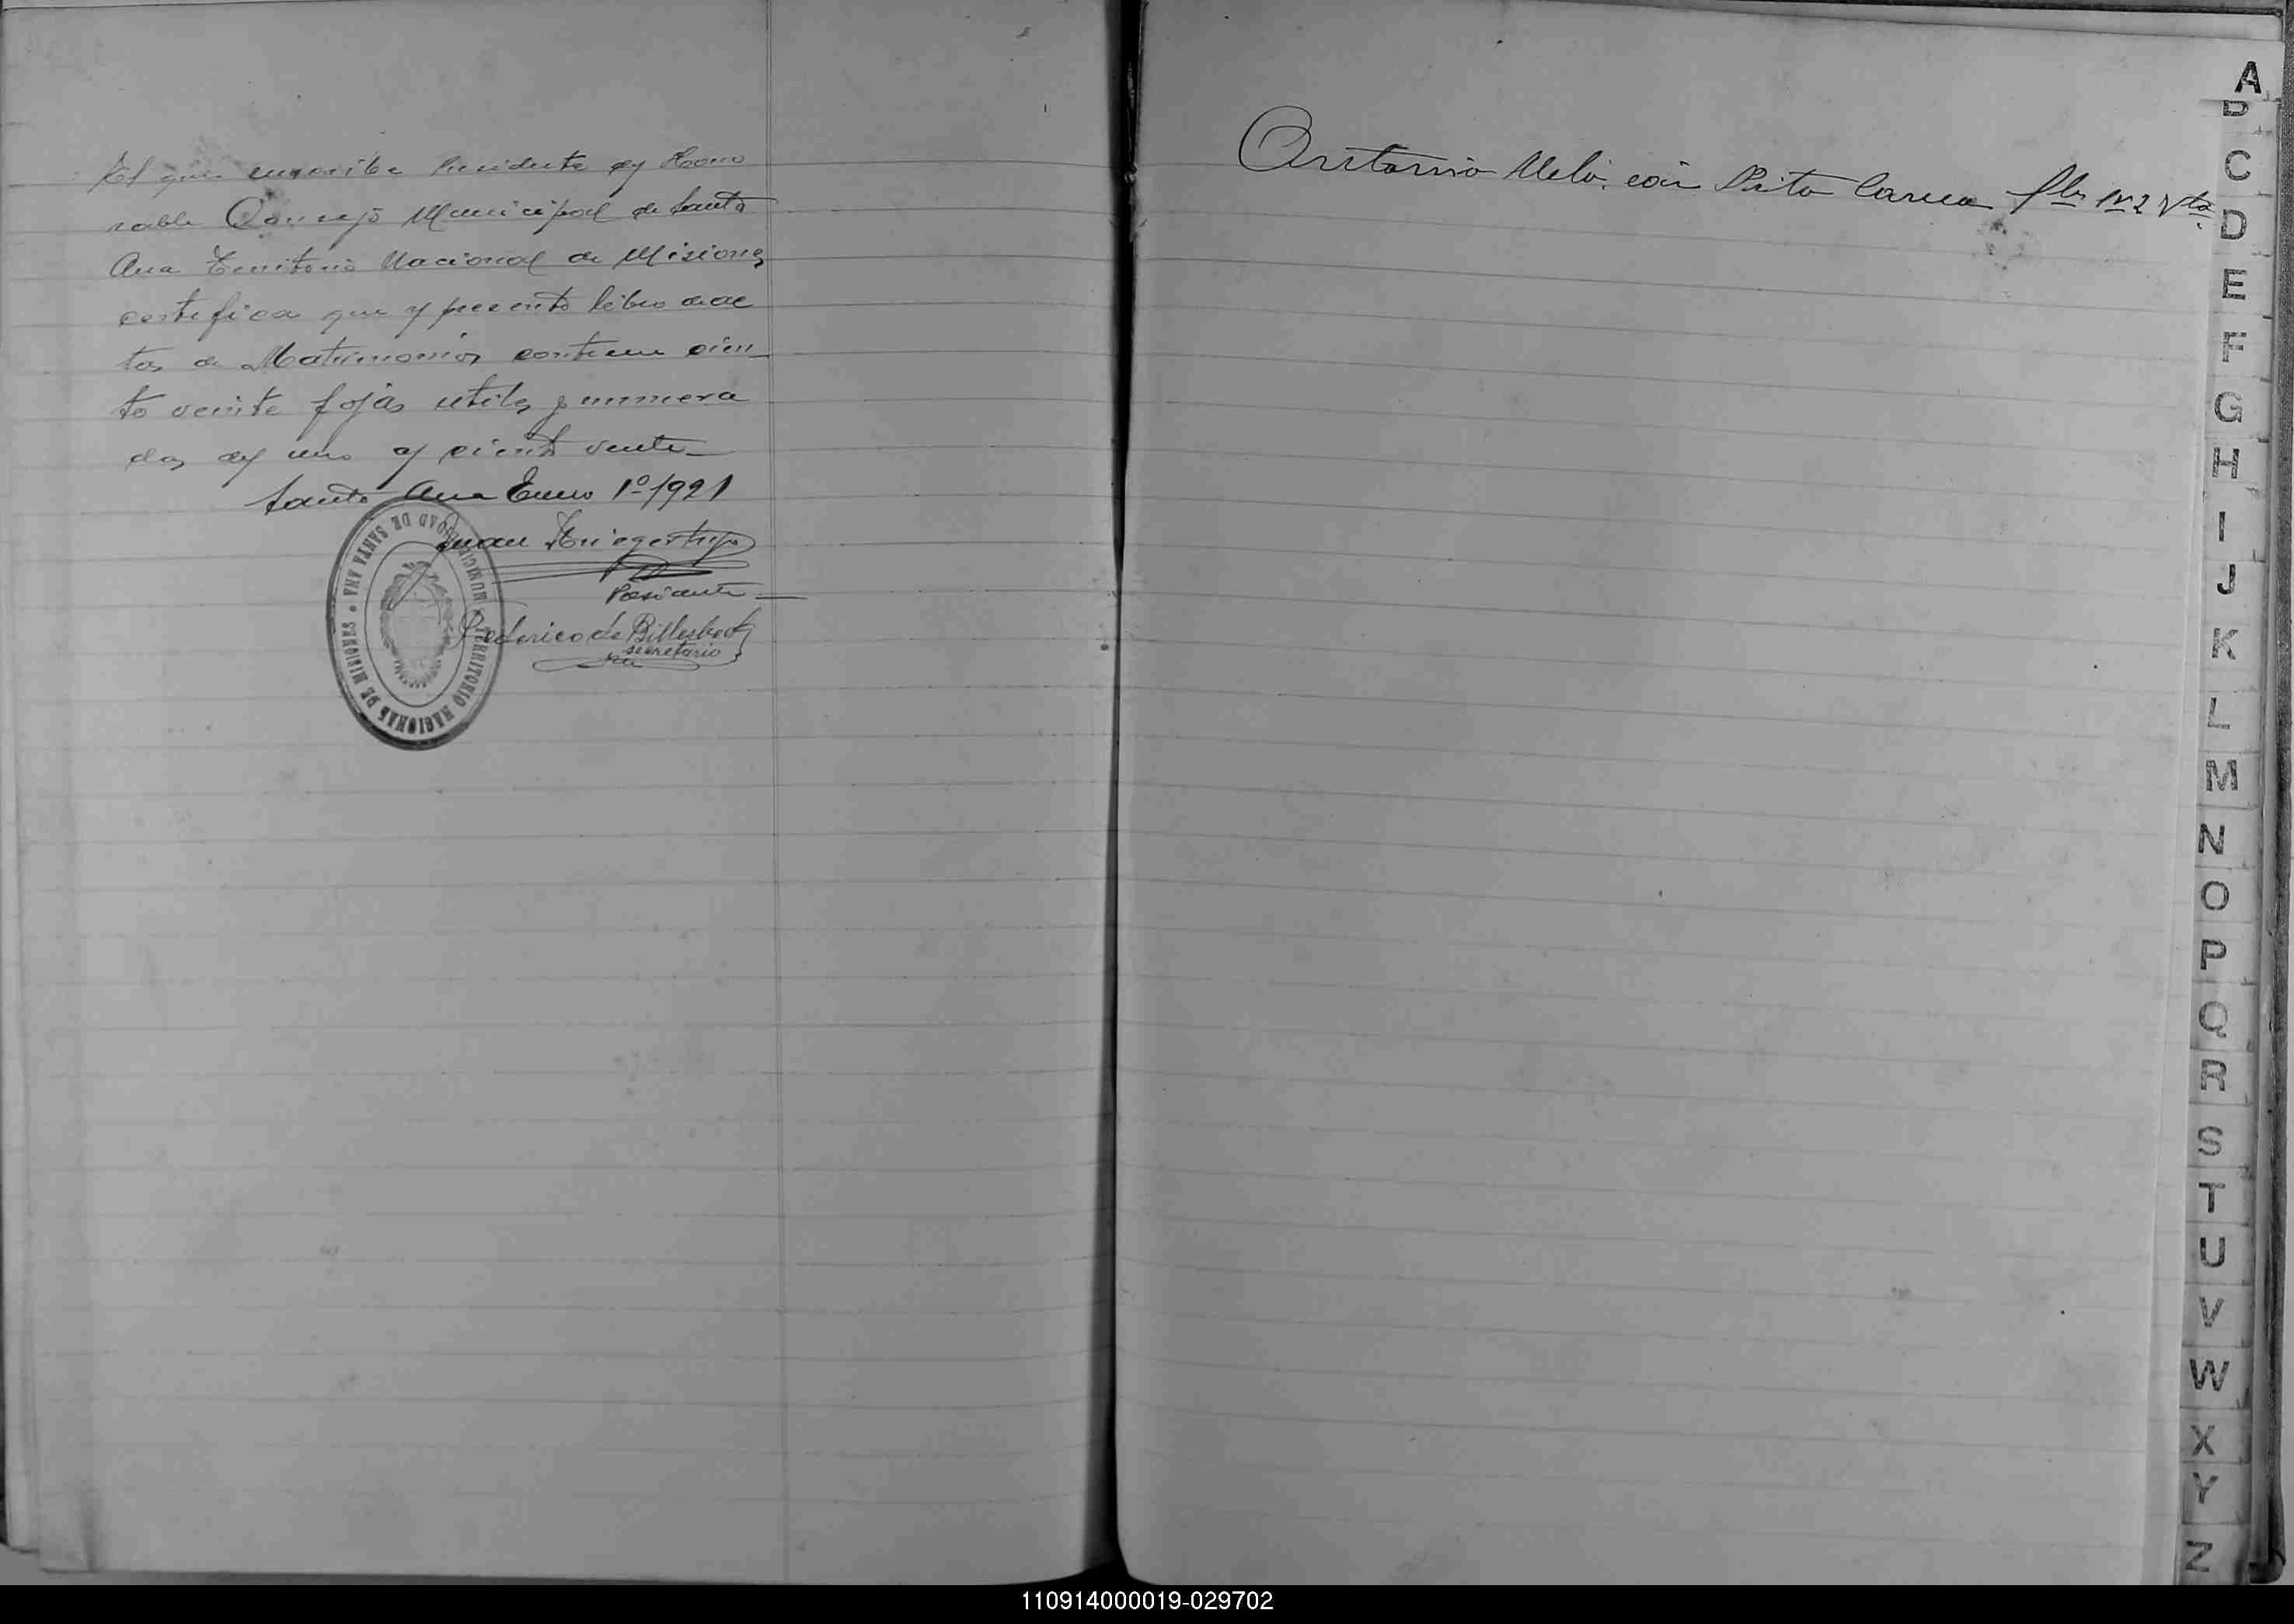 El que suscribe Presidente del Hono
rable Concejo Municipal de Santa
Ana Territorio Nacional de Misiones
certifica que el presente libro de ac
tas de Matrimonios contiene cien
to veinte fojas utiles y numera
das del uno al ciento veinte
Santa Ana Enero 1º 1921
Juan
Presidente
Federico de Billerbeck
secretario
MUNICIPALIDAD DE SANTA ANA • TERRITORIO NACIONAL DE MISIONES
Antonio Melo con Rita
A
B
C
D
E
F
G
H
I
J
K
L
M
N
O
P
Q
R
S
T
U
V
W
X
Y
Z
110914000019-029702